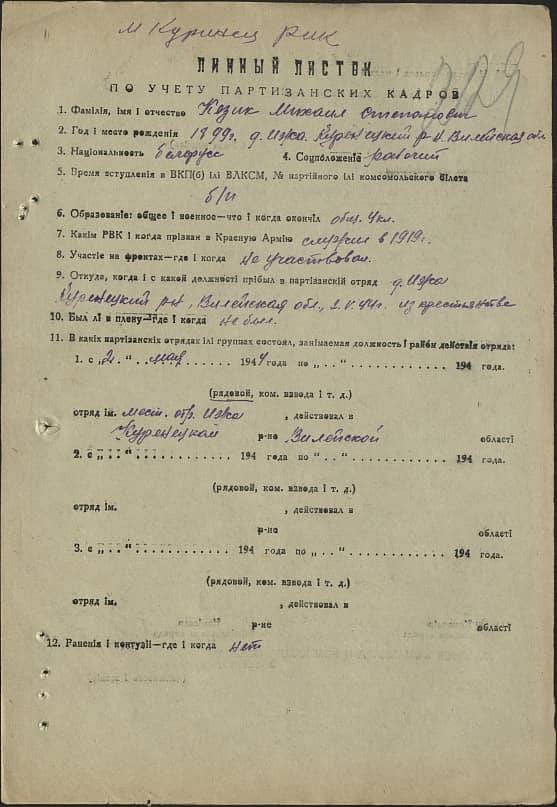 м Куринец РИК
329
ЛИЧНЫЙ ЛИСТОК
ПО УЧЕТУ ПАРТИЗАНСКИХ КАДРОВ
1. Фамілія, імя і отчество Кезик Михаил Степанович
2. Год і место рождения 1899г. д. Ижа Куренецкий р-н. Вилейская обл
3. Національность белорусс 4. Соцположеніе рабочий
5. Время вступления в ВКП(б) ілі ВЛКСМ, № партійного ілі комсомольского білета
б/п
6. Образованіе: общее і военное—что і когда окончіл общ. 4кл.
7. Какім РВК і когда прізван в Красную Армію служил в 1919г.
8. Участіе на фронтах—где і когда не участвовал.
9. Откуда, когда і с какой должності прібыл в партізанскій отряд д. Ижа
Куренецкий р-н, Вилейская обл., 2.V.44г. из крестьянства
10. Был лі в плену—где і когда не был.
11. В какіх партізанскіх отрядах ілі группах состоял, занімаемая должность і район действія отряда:
1. с „2.“ .. мая .... 1944 года по „ . . “ .............. 194 года.
(рядовой, ком. взвода і т. д.)
отряд ім. мест. отр. Ижа , действовал в
Куренецком р-не Вилейской області
2. с „ . . “ ............ 194 года по „ . . “ .............. 194 года.
(рядовой, ком. взвода і т. д.)
отряд ім. , действовал в
р-не області
3. с „ . . “ ............ 194 года по „ . . “ .............. 194 года.
(рядовой, ком. взвода і т. д.)
отряд ім. , действовал в
р-не області
12. Раненія і контузіі—где і когда нет